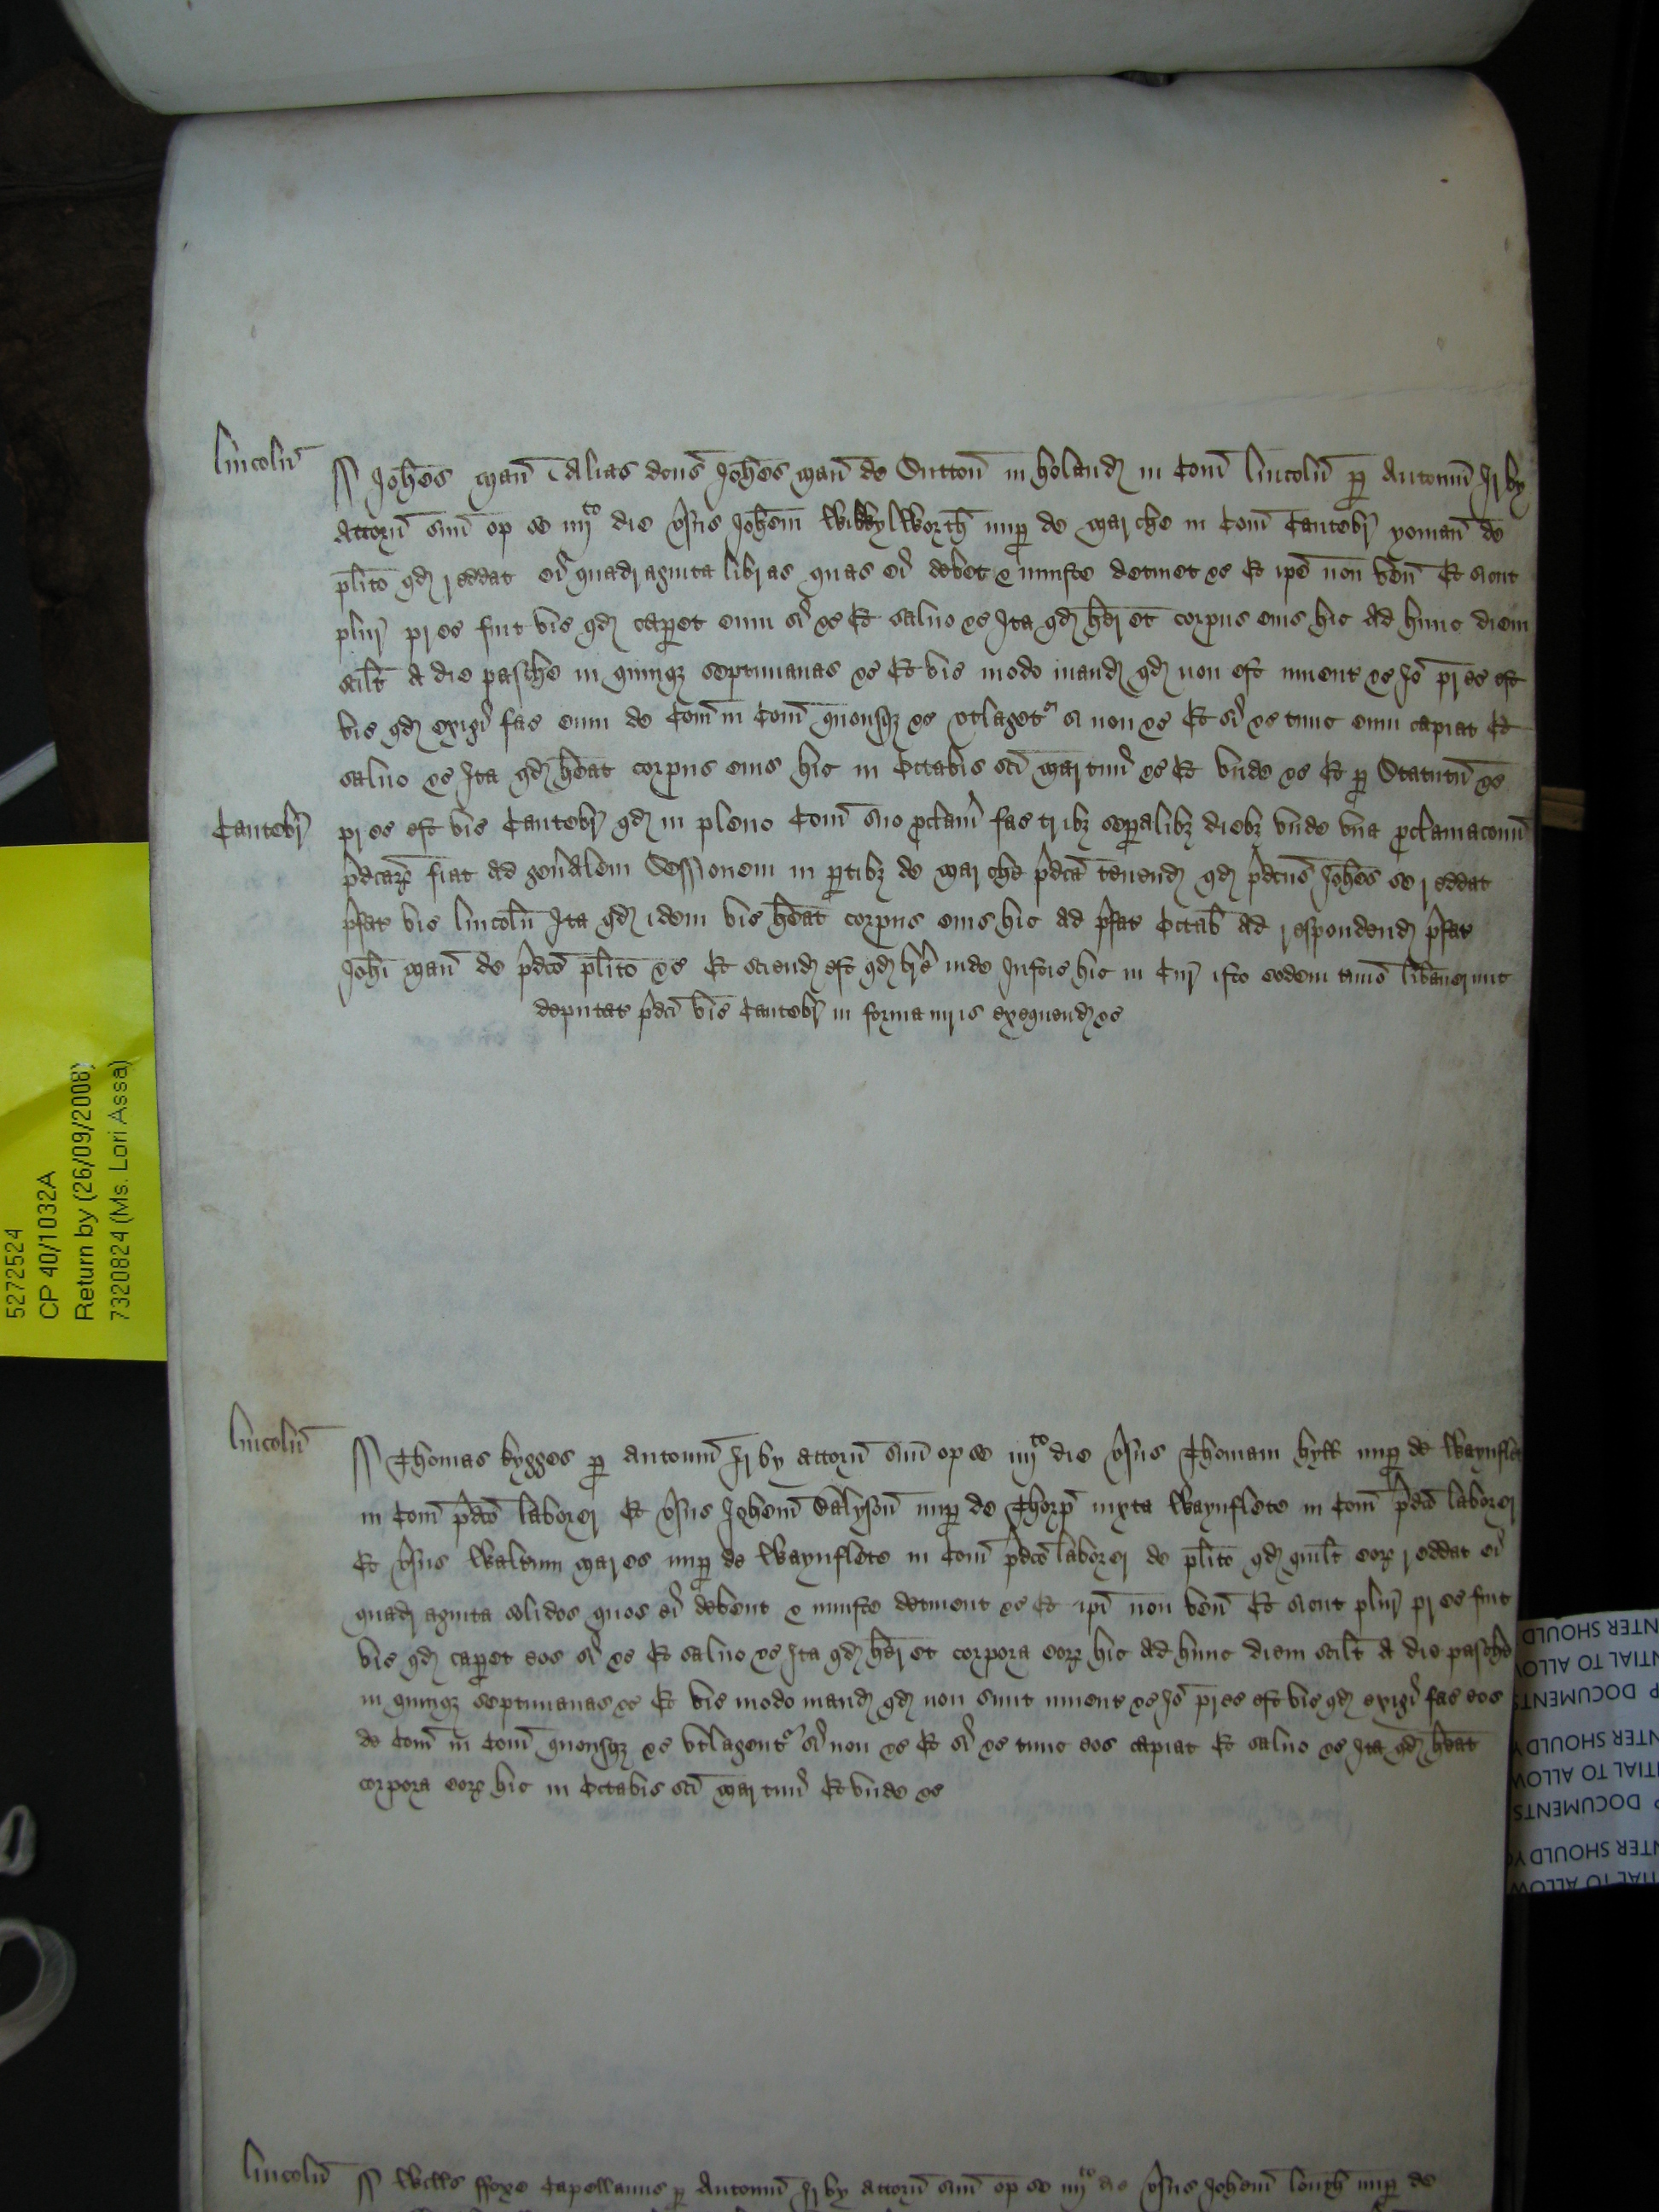 lincoln
ss Johes Man Alias dcus Johes Man de Sutton in holand in Com lincoln p Antoniu Irby
Attorn suu op se iiijto die vsus Johem Wibbylworth nup de Marche in Com Cantebr yoman de
plito qd reddat ei quadraginta libras quas ei debet & iniuste detinet &c Et ipe non ven Et sicut
plur pres fuit vic qd caperet eum si &c Et saluo &c Ita qd heret corpus eius hic Ad hunc diem
scilt A die pasche in quinqz septimanas &c Et vic modo mand qd non est inuent &c Io pres est
vic qd exigi fac eum de Com in Com quousqz &c vtlaget si non &c Et si &c tunc eum capiat Et
saluo &c Ita qd heat corpus eius hic in Octabis sci Martini &c Et vnde &c Et p Statutu &c
Cantebr
pres est vic Cantebr qd in pleno Com suo proclam fac tribz sepalibz diebz vnde vna proclamaconu
pdcarz fiat ad genalem Sessionem in ptibz de Marche pdca tenend qd pdcus Johes se reddat
pfat vic lincoln Ita qd idem vic heat corpus eius hic ad pfat Octab ad respondend pfat
Johi Man de pdco plito &c Et sciend est qd bre inde Iustic hic in Cur isto eodem tmio libauerunt
deputat pdci vic Cantebr in forma iuris exequend &c
lincoln
ss Thomas kygges p Antoniu Irby attorn suu op se iiijto die vsus Thomam hyll nup de Waynflet
in Com pdco laborer Et vsus Johem Dalyson nup de Thorp iuxta Waynflete in Com pdco laborer
Et vsus Waltrum Mares nup de Waynflete in Com pdco laborer de plito qd quilt eorz reddat ei
quadraginta solidos quos ei debent & iniuste detinent &c Et ipi non ven Et sicut plur pres fuit
vic qd caperet eos si &c Et saluo &c Ita qd heret corpora eorz hic ad hunc diem scilt A die pasche
in quinqz septimanas &c Et vic modo mand qd non sunt inuent &c Io pres est vic qd exigi fac eos
de Com in Com quousqz &c vtlagent si non &c Et si &c tunc eos capiat Et saluo &c Ita qd heat
corpora eorz hic in Octabis sci Martini Et vnde &c
lincoln
ss Wills ffoxe Capellanus p Antoniu Irby attorn suu op se iiijto die vsus Johem louth nup de
5272524
CP 40/1032A
Return by (26/09/2008)
7320824 (Ms. Lori Assa)
NTER SHOULD
NTIAL TO ALLOW
P DOCUMENTS
NTER SHOULD Y
NTIAL TO ALLOW
P DOCUMENTS
NTER SHOULD YO
TIAL TO ALLOW